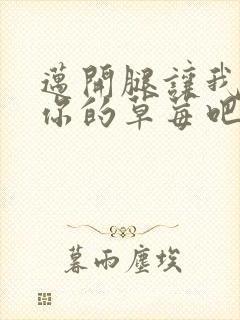 邁開腿讓我
你的草莓吧
暮雨塵埃